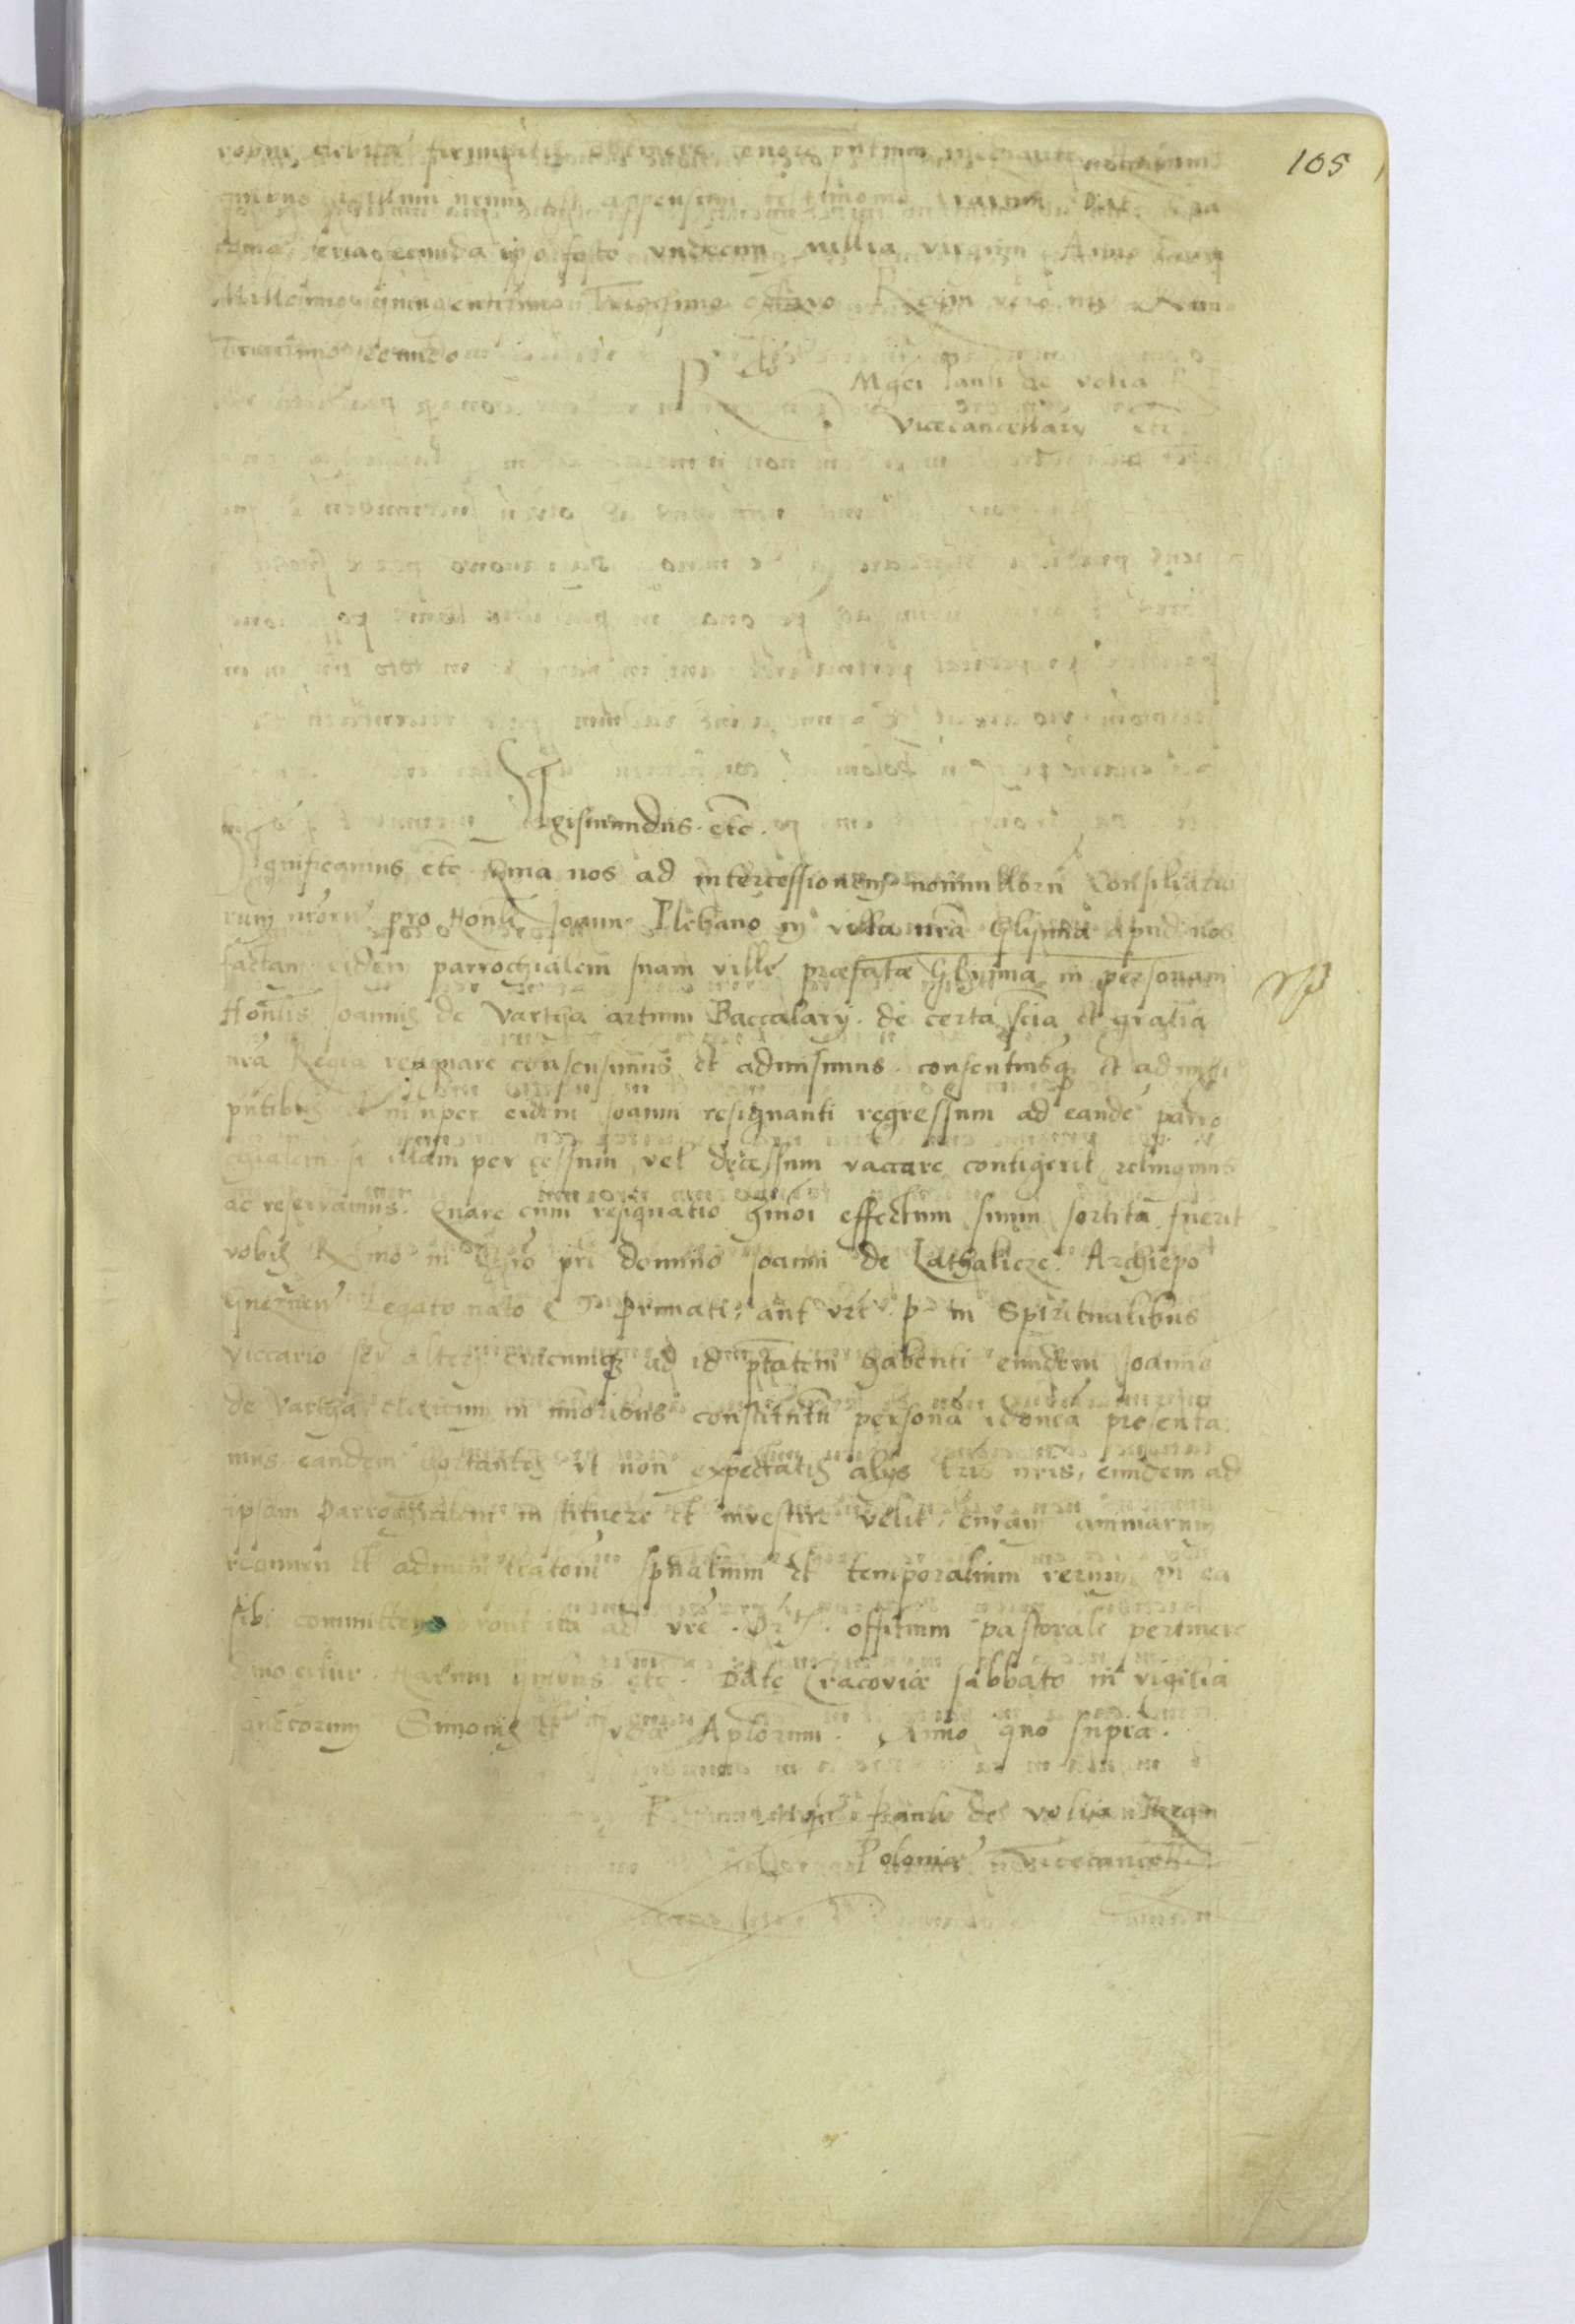 105
robur debitae firmitatis obtinere tenore pntium mediante
cuius sigillum nrum est appensum testimonio Datt Cra
feria secunda ipso festo undecim millia virginum Anno
Millesimo quingentesimo Trigesimo octavo Regni vero nri Anno
Tricesimo secundo
Rlo Mgci Pauli de volia
Vicecancellarij etc
Sigismundus etc.
Significamus etc Quia nos ad intercessionem nonnullorū Consiliario
rum nrorū pro Honli Joanne Plebano in villa nrā Glynna apud nos
factam eidem parrochialem suam ville præfatæ Glynna in personam
Honlis Joannis de Vartha artium Baccalarij de certa scia et gratia
nrā Regia resignare consensimus et admisimus consentimusq et admitti
pntibus et eidem Joanni resignanti regressum ad eandē parro
chialem si illam per cessum vel decessum vaccare contigerit relinqimus
ac reservamus. Quare cum resignatio hmoi effectum suum sortita fuerit
vobis Rmo in Chro pri domino Joanni de Lathalicze Archiepo
Gneznen Legato nato et Primati, aut vre p in Spiritualibus
Viccario seu alteri cuicumq ad id ptatem habenti eundem Joannē
de Vartha clericum in minoribus constitutū persona idonea presenta
mus eandem hortantes ut non expectatis alijs lris nris, eundem ad
ipsam Parrochialem instituere et investire velit, curam animarum
regimen et administrationē spualium et temporalium rerum in ea
sibi committens pront ad vre Pr offitium pastorale pertinere
dinoscitur. Harum quibus etc. Datt Cracoviæ sabbato in vigilia
sanctorum Simonis et Judæ Aplorum. Anno quo supra.
Pauli de volia Regni
Poloniæ Vicecancell